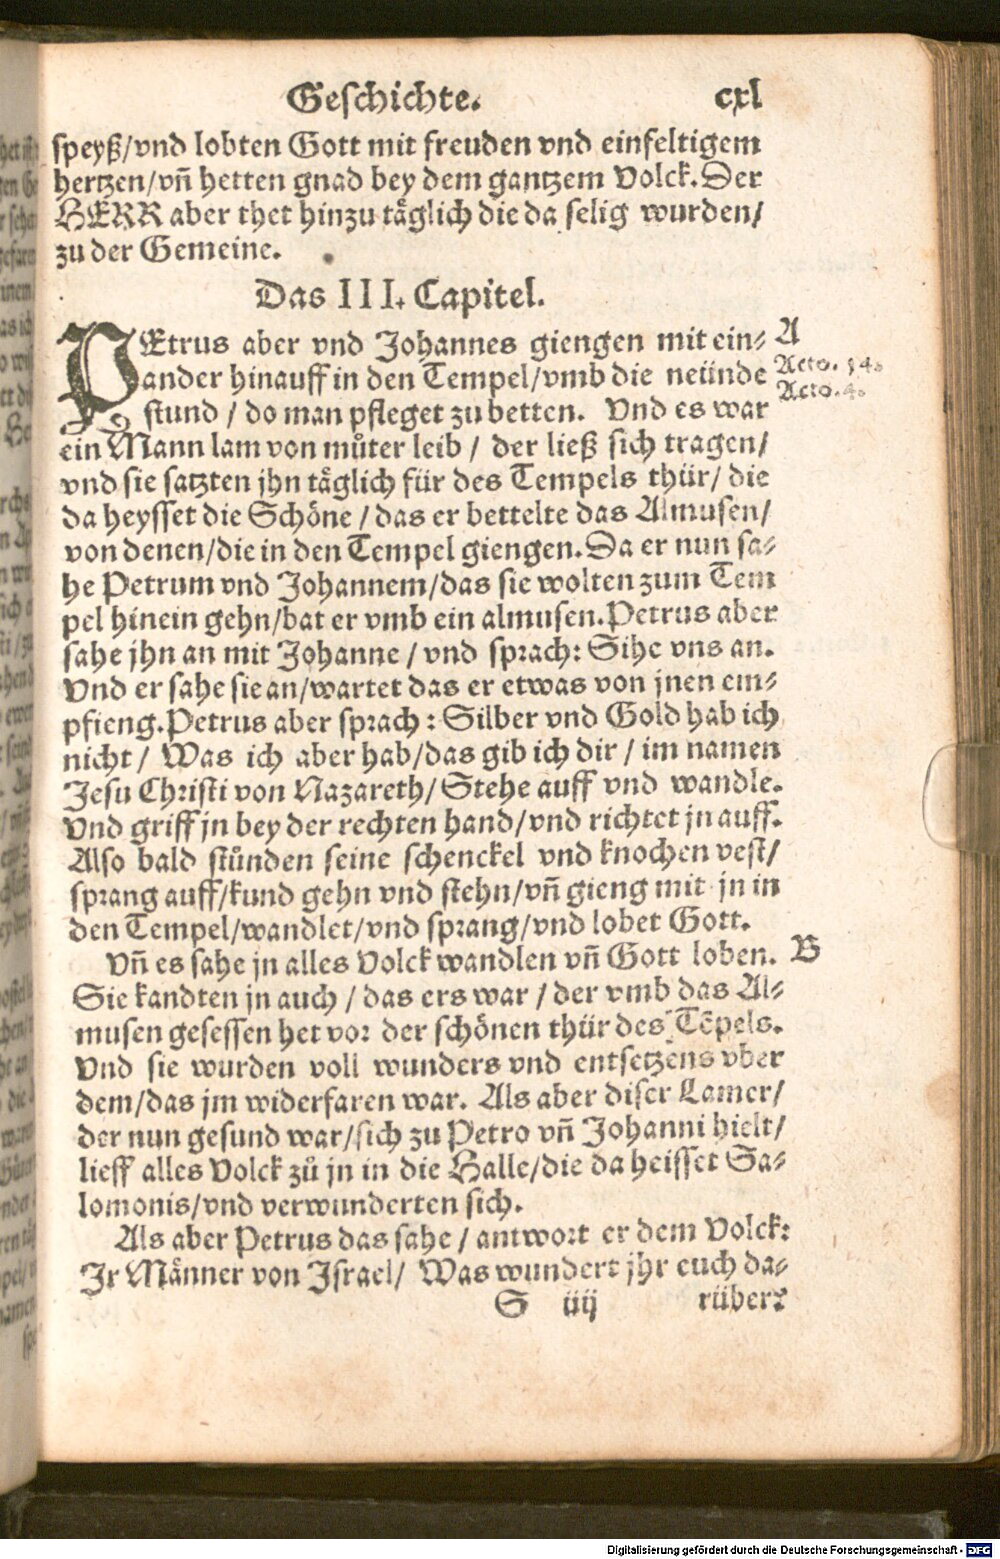 Geschichte. cxl
speyß/vnd lobten Gott mit freuden vnd einfeltigem
hertzen/vñ hetten gnad bey dem gantzem Volck. Der
HERR aber thet hinzu täglich die da selig wurden/
zu der Gemeine.
Das III. Capitel.
PEtrus aber vnd Johannes giengen mit ein⸗ A
ander hinauff in den Tempel/vmb die neünde Acto. 14.
Acto. 4.
stund / do man pfleget zu betten. Vnd es war
ein Mann lam von můter leib / der ließ sich tragen/
vnd sie satzten jhn täglich für des Tempels thür/ die
da heysset die Schöne / das er bettelte das Almusen/
von denen/die in den Tempel giengen. Da er nun sa⸗
he Petrum vnd Johannem/das sie wolten zum Tem
pel hinein gehn/bat er vmb ein almusen. Petrus aber
sahe jhn an mit Johanne / vnd sprach: Sihe vns an.
Vnd er sahe sie an/wartet das er etwas von jnen em⸗
pfieng. Petrus aber sprach : Silber vnd Gold hab ich
nicht / Was ich aber hab/das gib ich dir / im namen
Jesu Christi von Nazareth/ Stehe auff vnd wandle.
Vnd griff jn bey der rechten hand/vnd richtet jn auff.
Also bald stůnden seine schenckel vnd knochen vest/
sprang auff/kund gehn vnd stehn/vñ gieng mit jn in
den Tempel/wandlet/vnd sprang/vnd lobet Gott.
Vñ es sahe jn alles Volck wandlen vñ Gott loben. B
Sie kandten jn auch / das ers war / der vmb das Al⸗
musen gesessen het vor der schönen thür des Tẽpels.
Vnd sie wurden voll wunders vnd entsetzens vber
dem/das jm widerfaren war. Als aber diser Lamer/
der nun gesund war/sich zu Petro vñ Johanni hielt/
lieff alles Volck zů jn in die Halle/die da heisset Sa⸗
lomonis/vnd verwunderten sich.
Als aber Petrus das sahe / antwort er dem Volck:
Jr Männer von Jsrael/ Was wundert jhr euch da⸗
S iiij rüber?
Digitalisierung gefördert durch die Deutsche Forschungsgemeinschaft - DFG